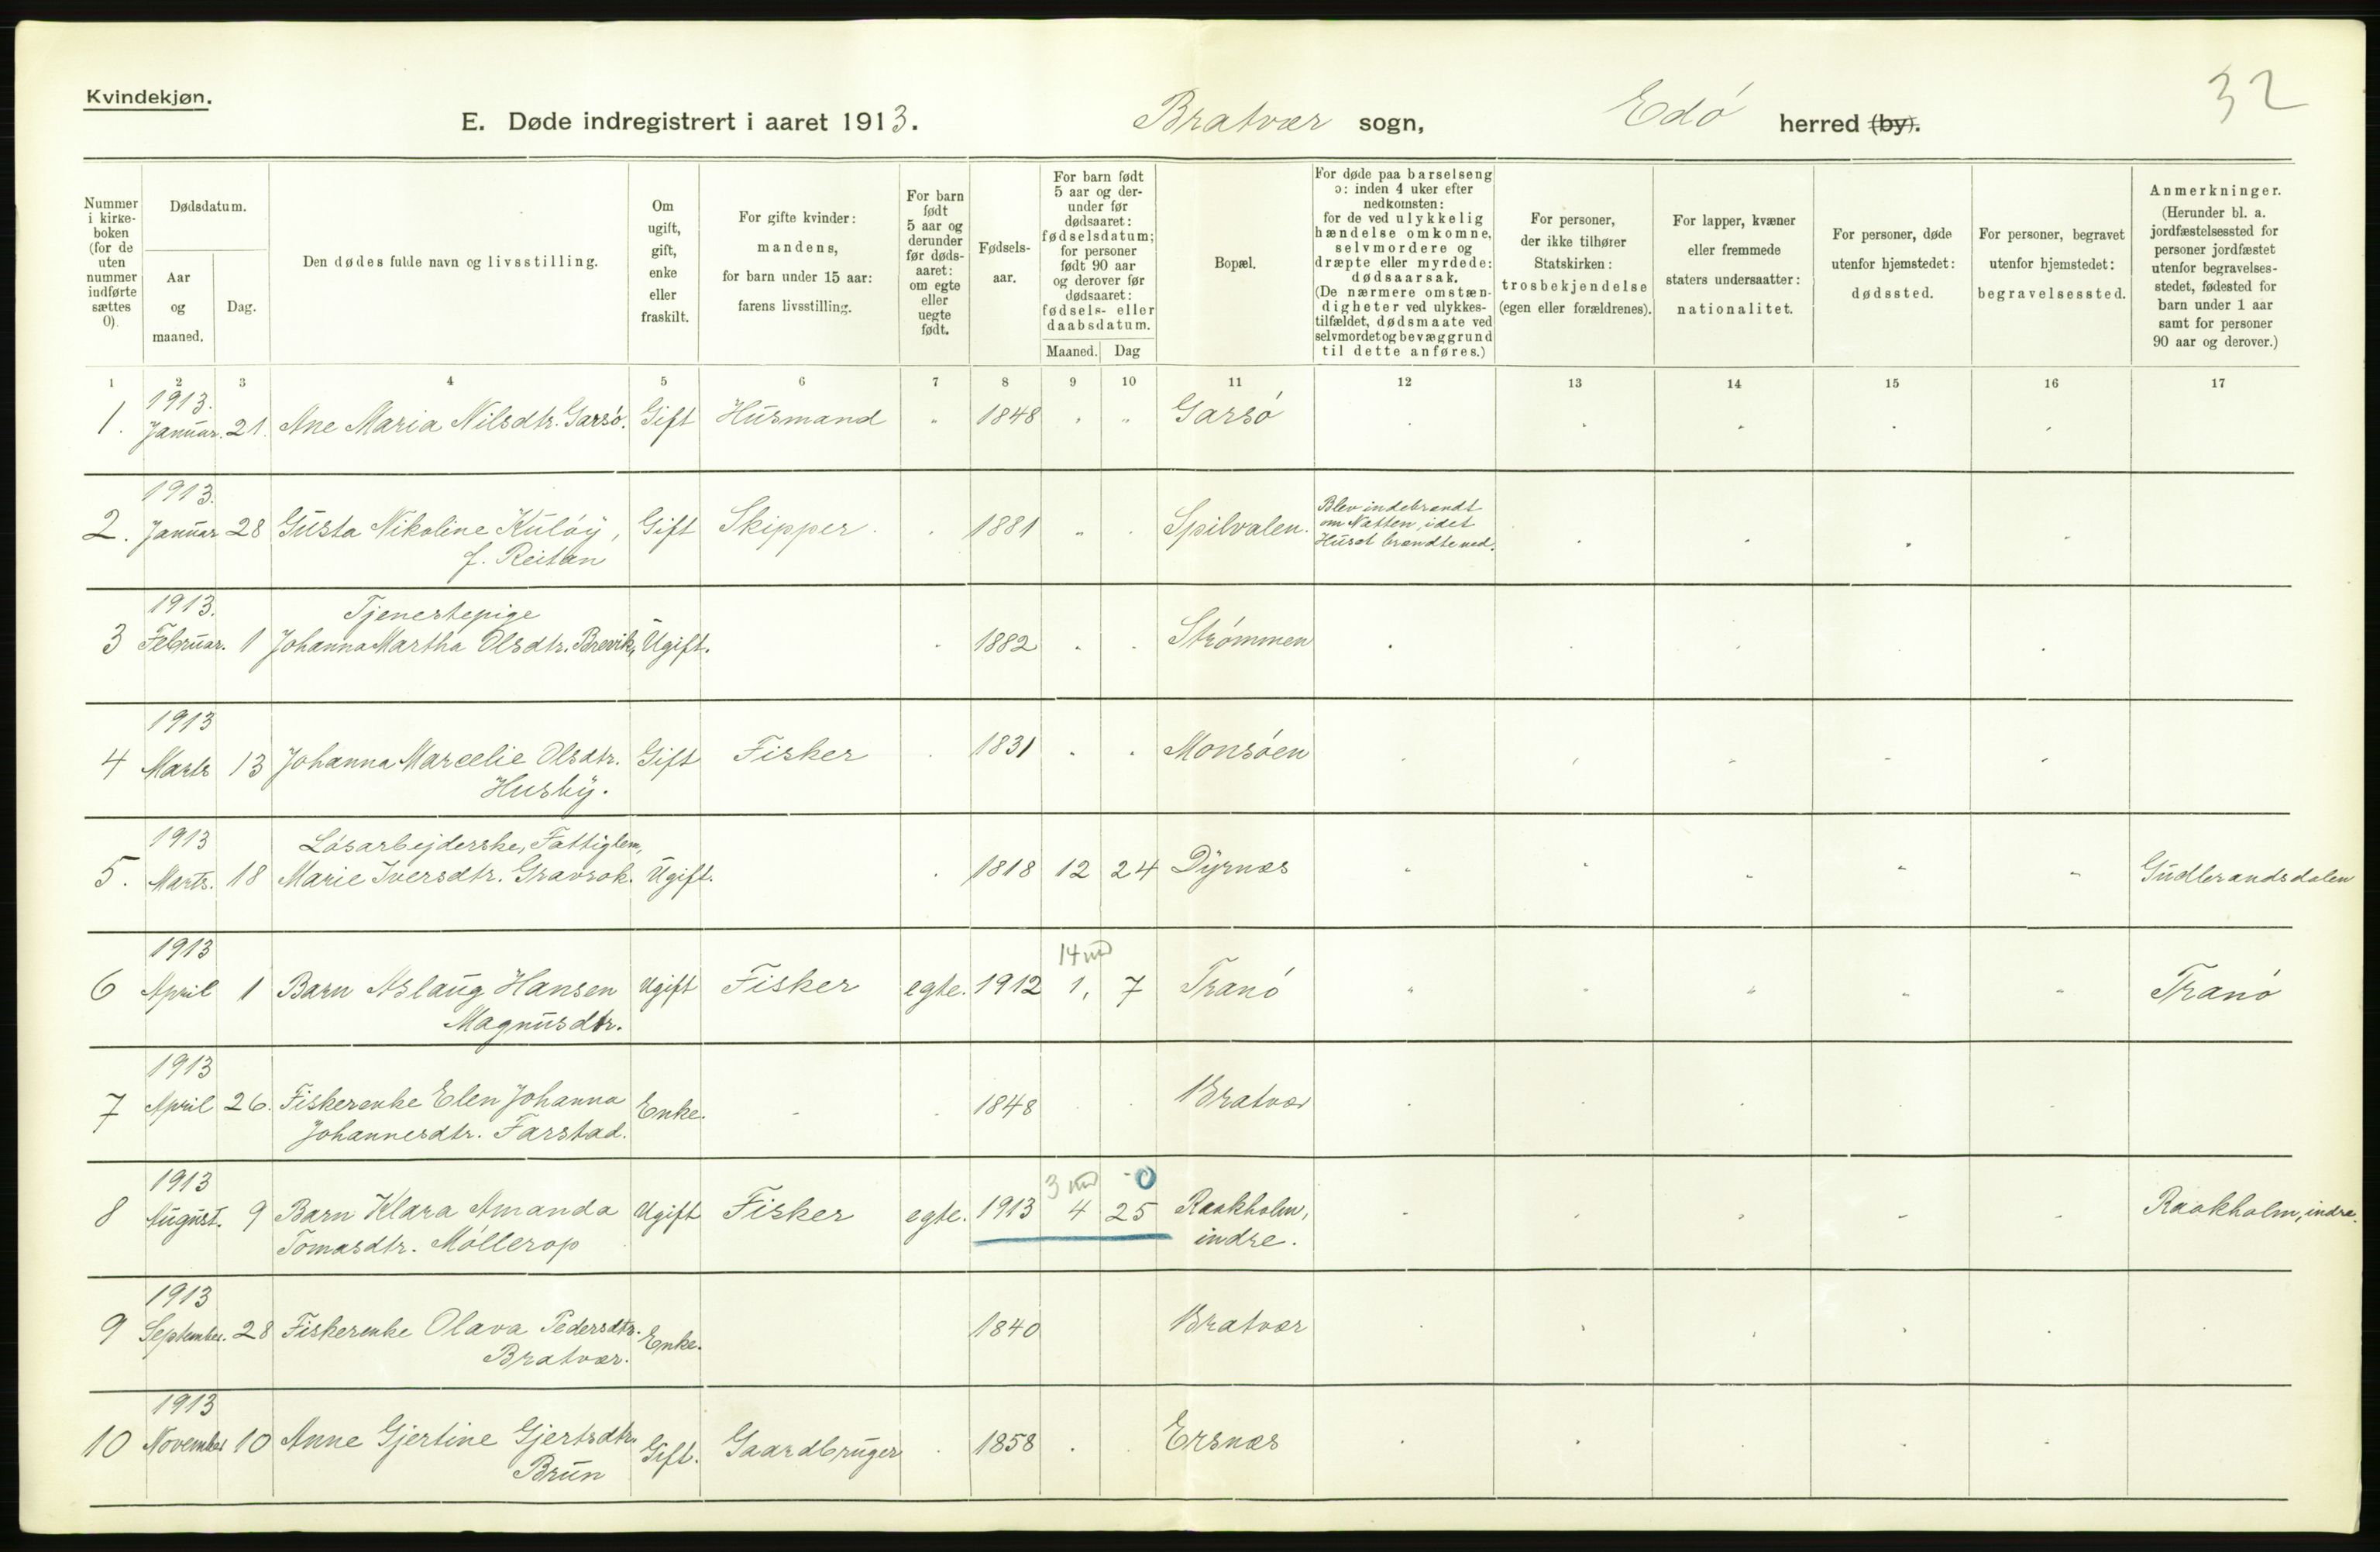 32
Kvindekjøn.
E. Døde indregistrert i aaret 1913. Bratvær sogn, Edø herred (by).
Nummer i kirke-boken (for de uten nummer indførte sættes 0).
Dødsdatum.
Aar og maaned.
Dag.
Den dødes fulde navn og livsstilling.
Om ugift, gift, enke eller fraskilt.
For gifte kvinder: mandens, for barn under 15 aar: farens livsstilling.
For barn født 5 aar og derunder før døds-aaret: om egte eller uegte født.
Fødsels-aar.
For barn født 5 aar og der-under før dødsaaret: fødselsdatum; for personer født 90 aar og derover før dødsaaret: fødsels- eller daabsdatum.
Maaned. Dag
Bopæl.
For døde paa barselseng ɔ: inden 4 uker efter nedkomsten: for de ved ulykkelig hændelse omkomne, selvmordere og dræpte eller myrdede: dødsaarsak. (De nærmere omstæn-digheter ved ulykkes-tilfældet, dødsmaate ved selvmordet og bevæggrund til dette anføres.)
For personer, der ikke tilhører Statskirken: trosbekjendelse (egen eller forældrenes).
For lapper, kvæner eller fremmede staters undersaatter: nationalitet.
For personer, døde utenfor hjemstedet: dødssted.
For personer, begravet utenfor hjemstedet: begravelsessted.
Anmerkninger. (Herunder bl. a. jordfæstelsessted for personer jordfæstet utenfor begravelses-stedet, fødested for barn under 1 aar samt for personer 90 aar og derover.)
1 2 3 4 5 6 7 8 9 10 11 12 13 14 15 16 17
1913.
1. Januar. 21. Ane Maria Nilsdtr. Garsø. Gift Husmand " 1848 " " Garsø
1913.
2. Januar 28 Gusta Nikoline Kuløy, Gift Skipper 1881 " Spilvalen. Blev indebrændt om Natten, idet Huset brændte ned.
f. Reitan
1913. Tjenestepige
3 Februar. 1 Johanna Martha Olsdtr. Brevik, Ugift. 1882 Strømmen
1913
4 Marts 13 Johanna Marcelie Olsdtr. Gift Fisker 1831 Monsøen
Husby.
1913 Løsarbejderske, Fattiglem,
5. Marts. 18 Marie Iversdtr. Gravrok. Ugift. 1818 12 24 Dyrnæs Gudbrandsdalen
1913 14 md
6 April 1 Barn Aslaug Hansen Ugift Fisker egte. 1912 1, 7 Tranø Tranø
Magnusdtr.
1913
7 April 26. Fiskerenke Elen Johanna Enke. 1848 Bratvær
Johannesdtr. Farstad.
1913 3 md 0
8 August. 9 Barn Klara Amanda Ugift Fisker egte. 1913 4 25 Raakholm, indre. Raakholm, indre.
Tomasdtr. Møllerop
1913
9 September. 28 Fiskerenke Olava Pedersdtr. Enke. 1840 Bratvær
Bratvær.
1913
10 November 10 Anne Gjertine Gjertsdtr. Gift. Gaardbruger 1858 Ersnæs
Brun